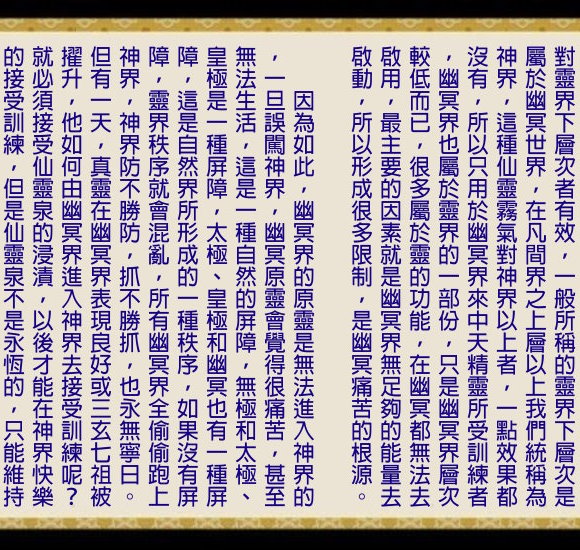 對靈界下層次者有效，一般所稱的靈界下層次是
屬於幽冥世界，在凡間界之上層以上我們統稱為
神界，這種仙靈霧氣對神界以上者，一點效果都
沒有，所以只用於幽冥界來中天精靈所受訓練者
，幽冥界也屬於靈界的一部份，只是幽冥界層次
較低而已，很多屬於靈的功能，在幽冥都無法去
啟用，最主要的因素就是幽冥界無足夠的能量去
啟動，所以形成很多限制，是幽冥痛苦的根源。
因為如此，幽冥界的原靈是無法進入神界的
，一旦誤闖神界，幽冥原靈會覺得很痛苦，甚至
無法生活，這是一種自然的屏障，無極和太極、
皇極是一種屏障，太極、皇極和幽冥也有一種屏
障，這是自然界所形成的一種秩序，如果沒有屏
障，靈界秩序就會混亂，所有幽冥界全偷偷跑上
神界，神界防不勝防，抓不勝抓，也永無寧日。
但有一天，真靈在幽冥界表現良好或三玄七祖被
擢升，他如何由幽冥界進入神界去接受訓練呢？
就必須接受仙靈泉的浸漬，以後才能在神界快樂
的接受訓練，但是仙靈泉不是永恆的，只能維持